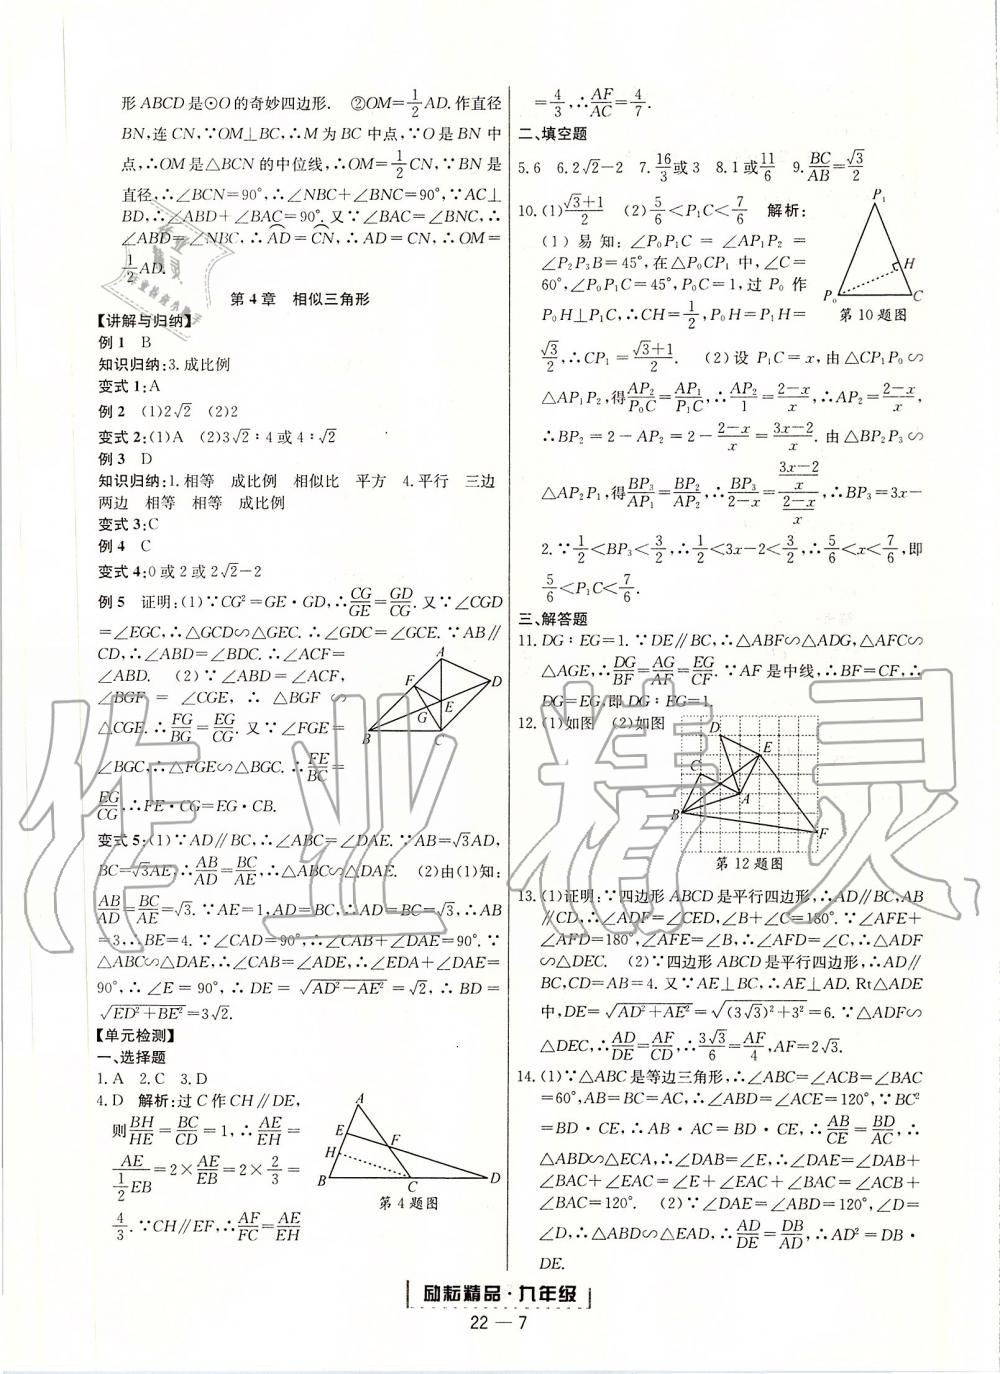 形 ABCD 是⊙O 的奇妙四边形. ②OM=1/2AD. 作直径
BN,连 CN,∵OM⊥BC,∴M 为 BC 中点,∵O 是 BN 中
点,∴OM 是△BCN 的中位线,∴OM=1/2CN,∵BN 是
直径,∴∠BCN=90°,∴∠NBC+∠BNC=90°,∵AC⊥
BD,∴∠ABD+∠BAC=90°. 又∵∠BAC=∠BNC,∴
∠ABD=∠NBC,∴⌒AD=⌒CN,∴AD=CN,∴OM=
1/2AD.
第 4 章 相似三角形
【讲解与归纳】
例 1 B
知识归纳:3.成比例
变式 1:A
例 2 (1)2√2 (2)2
变式 2:(1)A (2)3√2∶4 或 4∶√2
例 3 D
知识归纳:1.相等 成比例 相似比 平方 4.平行 三边
两边 相等 相等 成比例
变式 3:C
例 4 C
变式 4:0 或 2 或 2√2-2
例 5 证明:(1)∵CG²=GE·GD,∴CG/GE=GD/CG. 又∵∠CGD
=∠EGC,∴△GCD∽△GEC. ∴∠GDC=∠GCE. ∵AB∥
CD,∴∠ABD=∠BDC. ∴∠ACF=
∠ABD. (2)∵∠ABD=∠ACF,
∠BGF=∠CGE,∴△BGF∽
△CGE. ∴FG/BG=EG/CG. 又∵∠FGE=
∠BGC,∴△FGE∽△BGC. ∴FE/BC=
EG/CG,∴FE·CG=EG·CB.
A F D E G B C
变式 5:(1)∵AD∥BC,∴∠ABC=∠DAE. ∵AB=√3AD,
BC=√3AE,∴AB/AD=BC/AE,∴△ABC∽△DAE. (2)由(1)知:
AB/AD=BC/AE=√3. ∵AE=1,AD=BC,∴AD=BC=√3,∴AB
=3,∴BE=4. ∵∠CAD=90°,∴∠CAB+∠DAE=90°. ∵
△ABC∽△DAE,∴∠CAB=∠ADE,∴∠EDA+∠DAE=
90°,∴∠E=90°,∴DE=√(AD²-AE²)=√2,∴BD=
√(ED²+BE²)=3√2.
【单元检测】
一、选择题
1.A 2.C 3.D
4.D 解析:过 C 作 CH∥DE,
则 BH/HE=BC/CD=1,∴AE/EH=
AE/(1/2EB)=2×AE/EB=2×2/3=
4/3. ∵CH∥EF,∴AF/FC=AE/EH
A E F H B C D
第 4 题图
=4/3,∴AF/AC=4/7.
二、填空题
5.6 6.2√2-2 7.16/3或 3 8.1 或11/6 9.BC/AB=√3/2
10.(1)(√3+1)/2 (2)5/6<P₁C<7/6 解析:
(1)易知:∠P₀P₁C=∠AP₁P₂=
∠P₂P₃B=45°,在△P₀CP₁中,∠C=
60°,∠P₀P₁C=45°,P₀C=1,过 P₀ 作
P₀H⊥P₁C,∴CH=1/2,P₀H=P₁H=
√3/2,∴CP₁=(√3+1)/2. (2)设 P₁C=x,由△CP₁P₀∽
P₁ H P₀ C
第 10 题图
△AP₁P₂,得AP₂/P₀C=AP₁/P₁C,∴AP₂/1=(2-x)/x,∴AP₂=(2-x)/x,
∴BP₂=2-AP₂=2-(2-x)/x=(3x-2)/x. 由△BP₂P₃∽
△AP₂P₁,得BP₃/AP₁=BP₂/AP₂,∴BP₃/(2-x)=((3x-2)/x)/((2-x)/x),∴BP₃=3x-
2. ∵1/2<BP₃<3/2,∴1/2<3x-2<3/2,∴5/6<x<7/6,即
5/6<P₁C<7/6.
三、解答题
11.DG∶EG=1. ∵DE∥BC,∴△ABF∽△ADG,△AFC∽
△AGE,∴DG/BF=AG/AF=EG/CF. ∵AF 是中线,∴BF=CF,∴
DG=EG,即 DG∶EG=1.
12.(1)如图 (2)如图
D E C A B F
第 12 题图
13.(1)证明:∵四边形 ABCD 是平行四边形,∴AD∥BC,AB
∥CD,∴∠ADF=∠CED,∠B+∠C=180°. ∵∠AFE+
∠AFD=180°,∠AFE=∠B,∴∠AFD=∠C,∴△ADF
∽△DEC. (2)∵四边形 ABCD 是平行四边形,∴AD∥
BC,CD=AB=4. 又∵AE⊥BC,∴AE⊥AD. Rt△ADE
中,DE=√(AD²+AE²)=√((3√3)²+3²)=6. ∵△ADF∽
△DEC,∴AD/DE=AF/CD,∴3√3/6=AF/4,AF=2√3.
14.(1)∵△ABC 是等边三角形,∴∠ABC=∠ACB=∠BAC
=60°,AB=BC=AC,∴∠ABD=∠ACE=120°,∵BC²
=BD·CE,∴AB·AC=BD·CE,∴AB/CE=BD/AC,∴
△ABD∽△ECA,∴∠DAB=∠E,∴∠DAE=∠DAB+
∠BAC+∠EAC=∠E+∠EAC+∠BAC=∠ACB+
∠BAC=120°. (2)∵∠DAE=∠ABD=120°,∠D=
∠D,∴△ABD∽△EAD,∴AD/DE=DB/AD,∴AD²=BD·
DE.
励耘精品·九年级
22 — 7
作业精灵